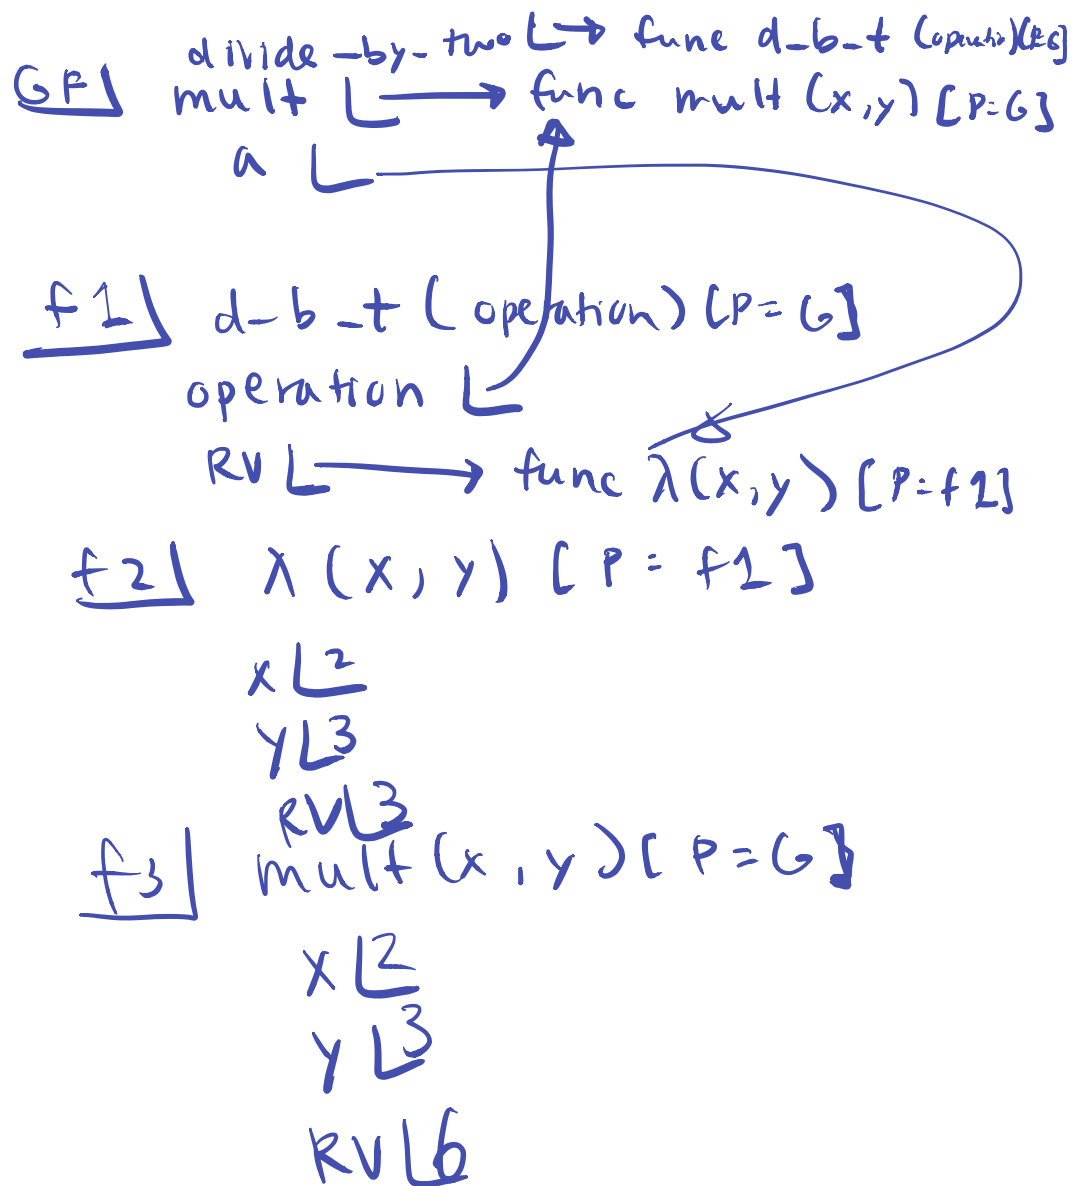 divide_by_two → func d_b_t (operation)[P=G]
GF mult → func mult (x,y) [P=G]
a
f1 d_b_t (operation) [P=G]
operation
RV → func λ(x,y) [P=f1]
f2 λ(x, y) [P=f1]
x 2
y 3
RV 3
f3 mult(x, y) [P=G]
x 2
y 3
RV 6